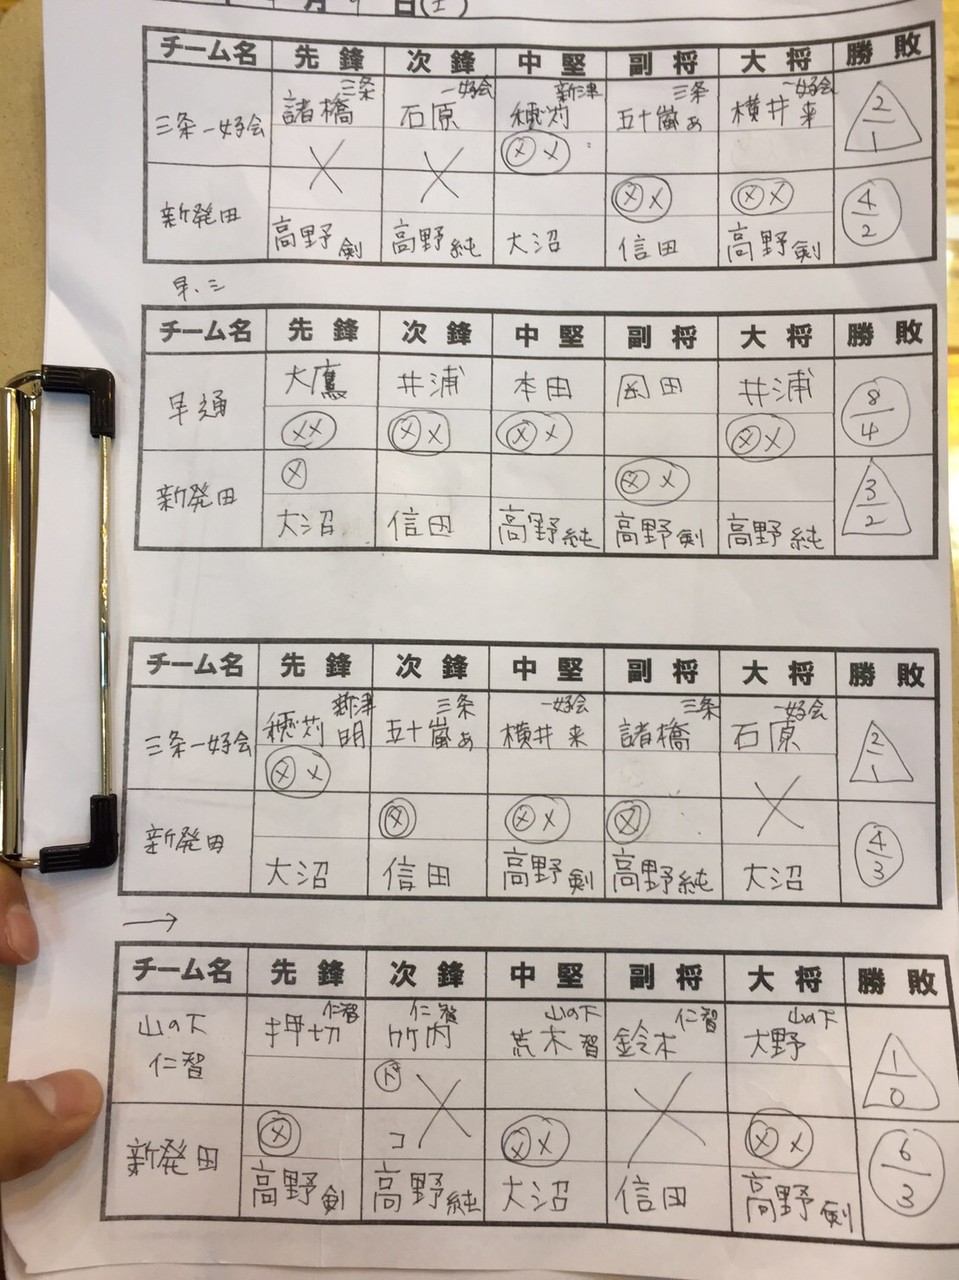 月 9 日(土)
チーム名 先鋒 次鋒 中堅 副将 大将 勝敗
三条 一好会 新津 三条 一好会
三条一好会 諸橋 石原 穂苅 五十嵐あ 横井来 2/1
ⓧ x
新発田 ⓧ x ⓧ x 4/2
高野剣 高野純 大沼 信田 高野剣
早、三
チーム名 先鋒 次鋒 中堅 副将 大将 勝敗
早通 大鷹 井浦 本田 岡田 井浦 8/4
xx ⓧ x ⓧ x ⓧ x
新発田 ⓧ ⓧ x 3/2
大沼 信田 高野純 高野剣 高野純
チーム名 先鋒 次鋒 中堅 副将 大将 勝敗
新津 三条 一好会 三条 一好会
三条一好会 穂苅明 五十嵐あ 横井来 諸橋 石原 2/1
ⓧ x
新発田 ⓧ ⓧ x ⓧ 4/3
大沼 信田 高野剣 高野純 大沼
→
チーム名 先鋒 次鋒 中堅 副将 大将 勝敗
仁智 仁智 山の下 仁智 山の下
山の下 押切 竹内 荒木智 鈴木 大野 1/0
仁智 ド
新発田 ⓧ コ ⓧ x ⓧ x 6/3
高野剣 高野純 大沼 信田 高野剣